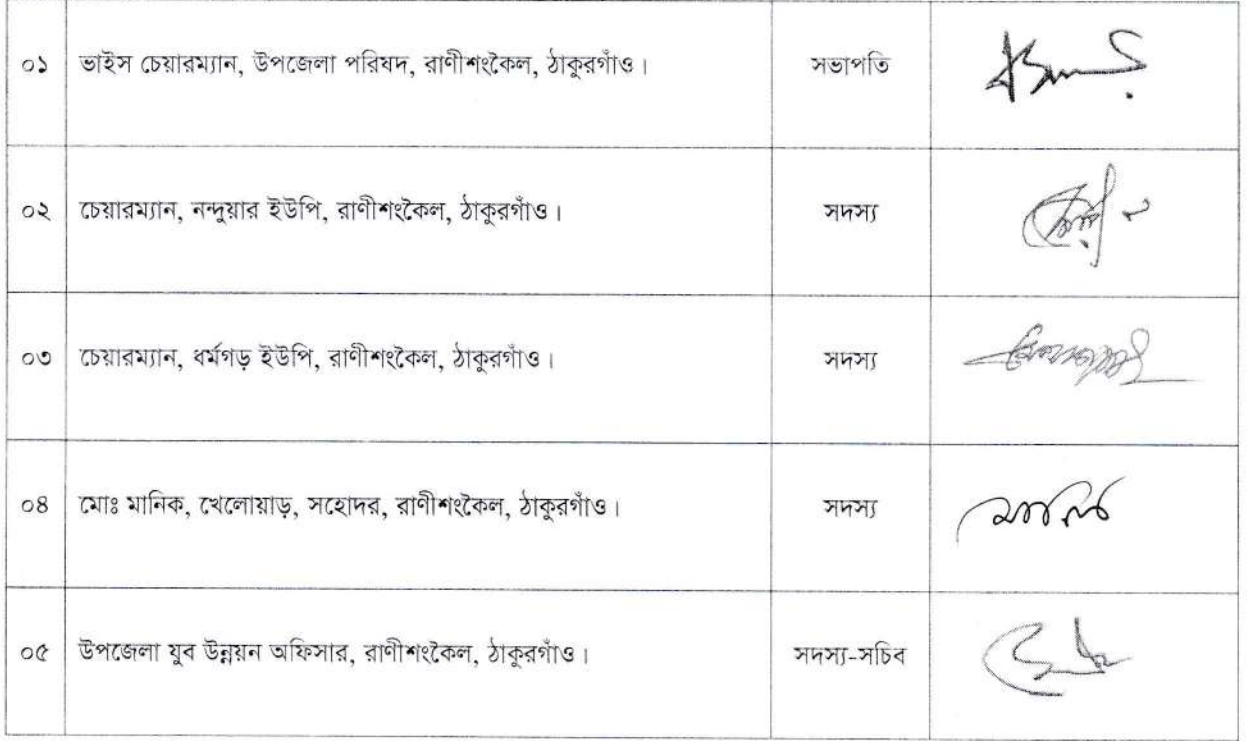 ০১ ভাইস চেয়ারম্যান, উপজেলা পরিষদ, রাণীশংকৈল, ঠাকুরগাঁও। সভাপতি
০২ চেয়ারম্যান, নন্দুয়ার ইউপি, রাণীশংকৈল, ঠাকুরগাঁও। সদস্য
০৩ চেয়ারম্যান, ধর্মগড় ইউপি, রাণীশংকৈল, ঠাকুরগাঁও। সদস্য
০৪ মোঃ মানিক, খেলোয়াড়, সহোদর, রাণীশংকৈল, ঠাকুরগাঁও। সদস্য মানিক
০৫ উপজেলা যুব উন্নয়ন অফিসার, রাণীশংকৈল, ঠাকুরগাঁও। সদস্য-সচিব